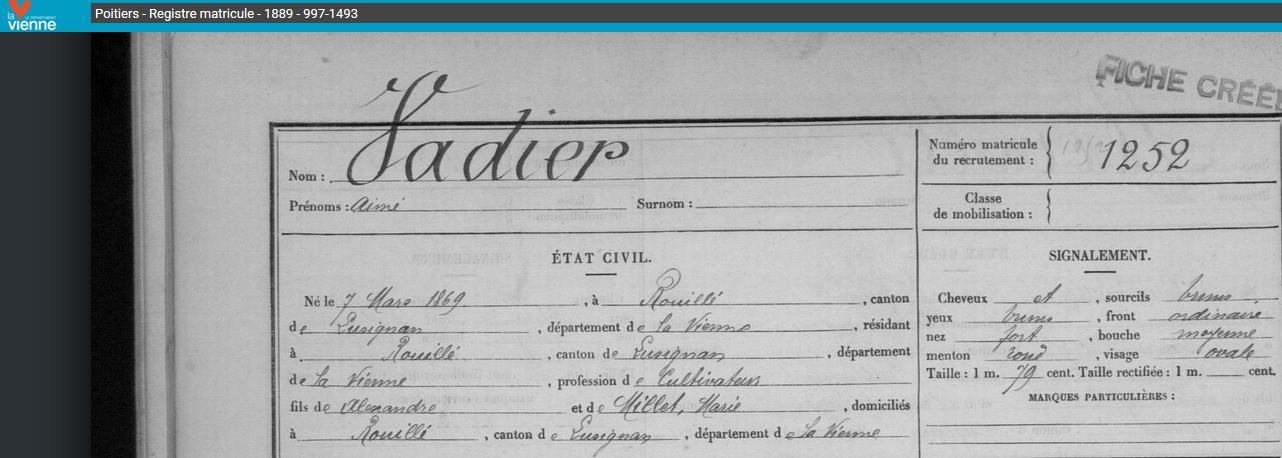 la vienne
LE DÉPARTEMENT
Poitiers - Registre matricule - 1889 - 997-1493
FICHE CRÉÉE
Nom : Vadier
Prénoms : Aimé Surnom :
Numéro matricule du recrutement : 1252
Classe de mobilisation :
ÉTAT CIVIL.
Né le 7 Mars 1869, à Rouillé, canton
de Lusignan, département de la Vienne, résidant
à Rouillé, canton de Lusignan, département
de la Vienne, profession de Cultivateur
fils de Alexandre et de Millet, Marie, domiciliés
à Rouillé, canton de Lusignan, département de la Vienne
SIGNALEMENT.
Cheveux et, sourcils bruns
yeux bruns, front ordinaire
nez fort, bouche moyenne
menton rond, visage ovale
Taille : 1 m. 79 cent. Taille rectifiée : 1 m. cent.
MARQUES PARTICULIÈRES :